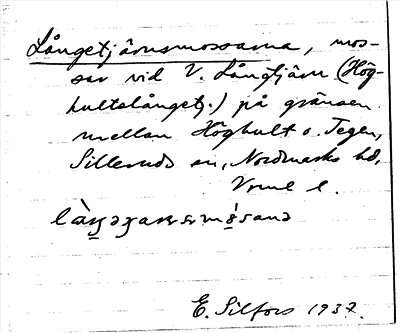 Långetjärnsmossarna, mos-
sar vid V. Långtjärn (Hög-
hultalångetj.) på gränsen
mellan Höghult o. Tegen,
Silleruds sn, Nordmarks hd,
Vrml l.
E. Silfors 1937.